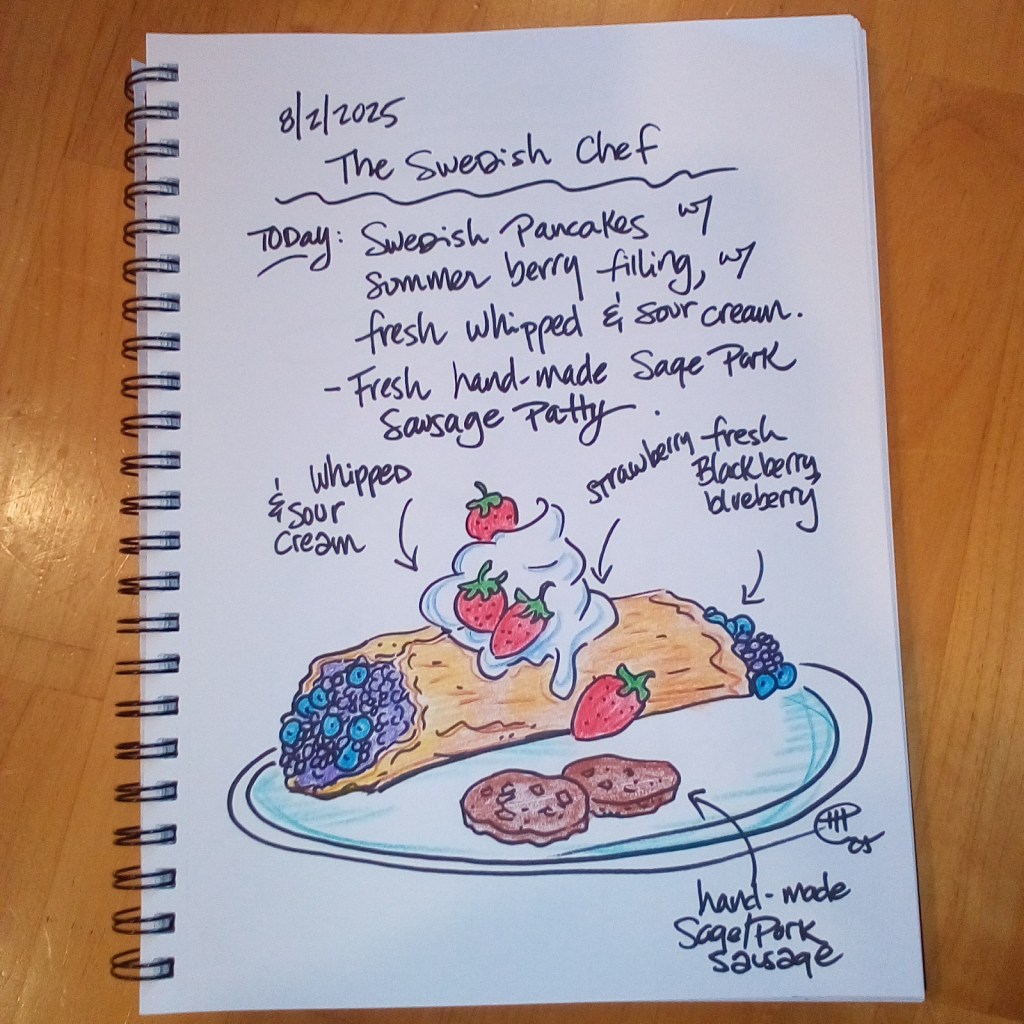 8/2/2025
The Swedish Chef
Today: Swedish Pancakes w/
Summer berry filling, w/
fresh whipped & sour cream.
- Fresh hand-made Sage Pork
Sausage Patty.
Whipped
& Sour
Cream
strawberry
fresh
Blackberry,
blueberry
hand-made
Sage/Pork
sausage